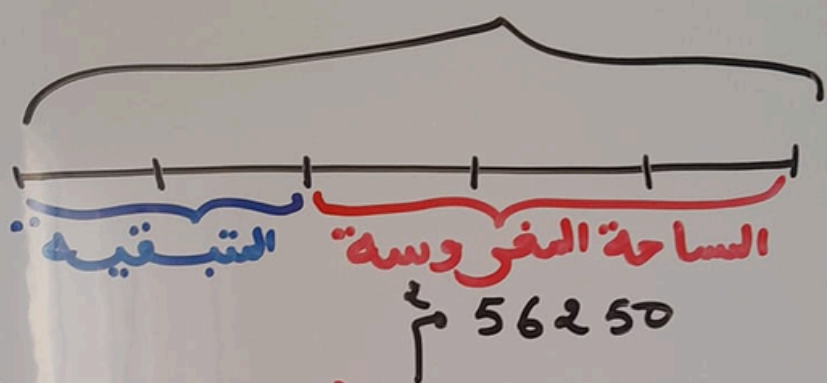 المساحة المغروسة المتبقية
56250 م²